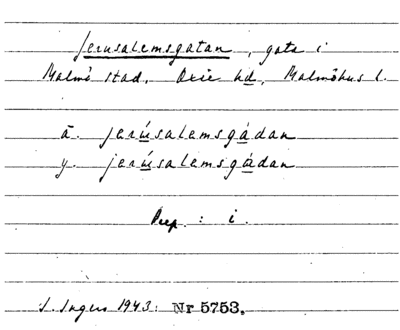 Jerusalemsgatan, gata i
Malmö stad. Oxie hd, Malmöhus l.
ä. jerúsalemsgádan
y. jerúsalemsgádan
Prep. : i.
I. Ingers 1943. Nr 5753.